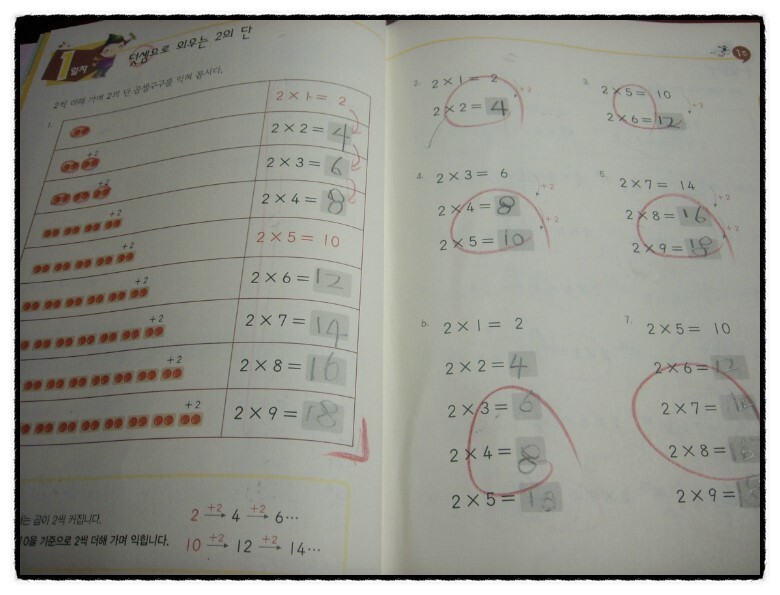 1일차
덧셈으로 외우는 2의 단
2씩 더해 가며 2의 단 곱셈구구를 익혀 봅시다.
1.
2×1=2
+2
2×2=4
+2
2×3=6
+2
2×4=8
+2
2×5=10
+2
2×6=12
+2
2×7=14
+2
2×8=16
+2
2×9=18
는 곱이 2씩 커집니다.
2 +2→ 4 +2→ 6…
10을 기준으로 2씩 더해 가며 익힙니다.
10 +2→ 12 +2→ 14…
2. 2×1=2
2×2=4 +2
3. 2×5=10
2×6=12 +2
4. 2×3=6
2×4=8 +2
2×5=10 +2
5. 2×7=14
2×8=16 +2
2×9=18 +2
6. 2×1=2
2×2=4
2×3=6
2×4=8
2×5=
7. 2×5=10
2×6=12
2×7=
2×8=
2×9=